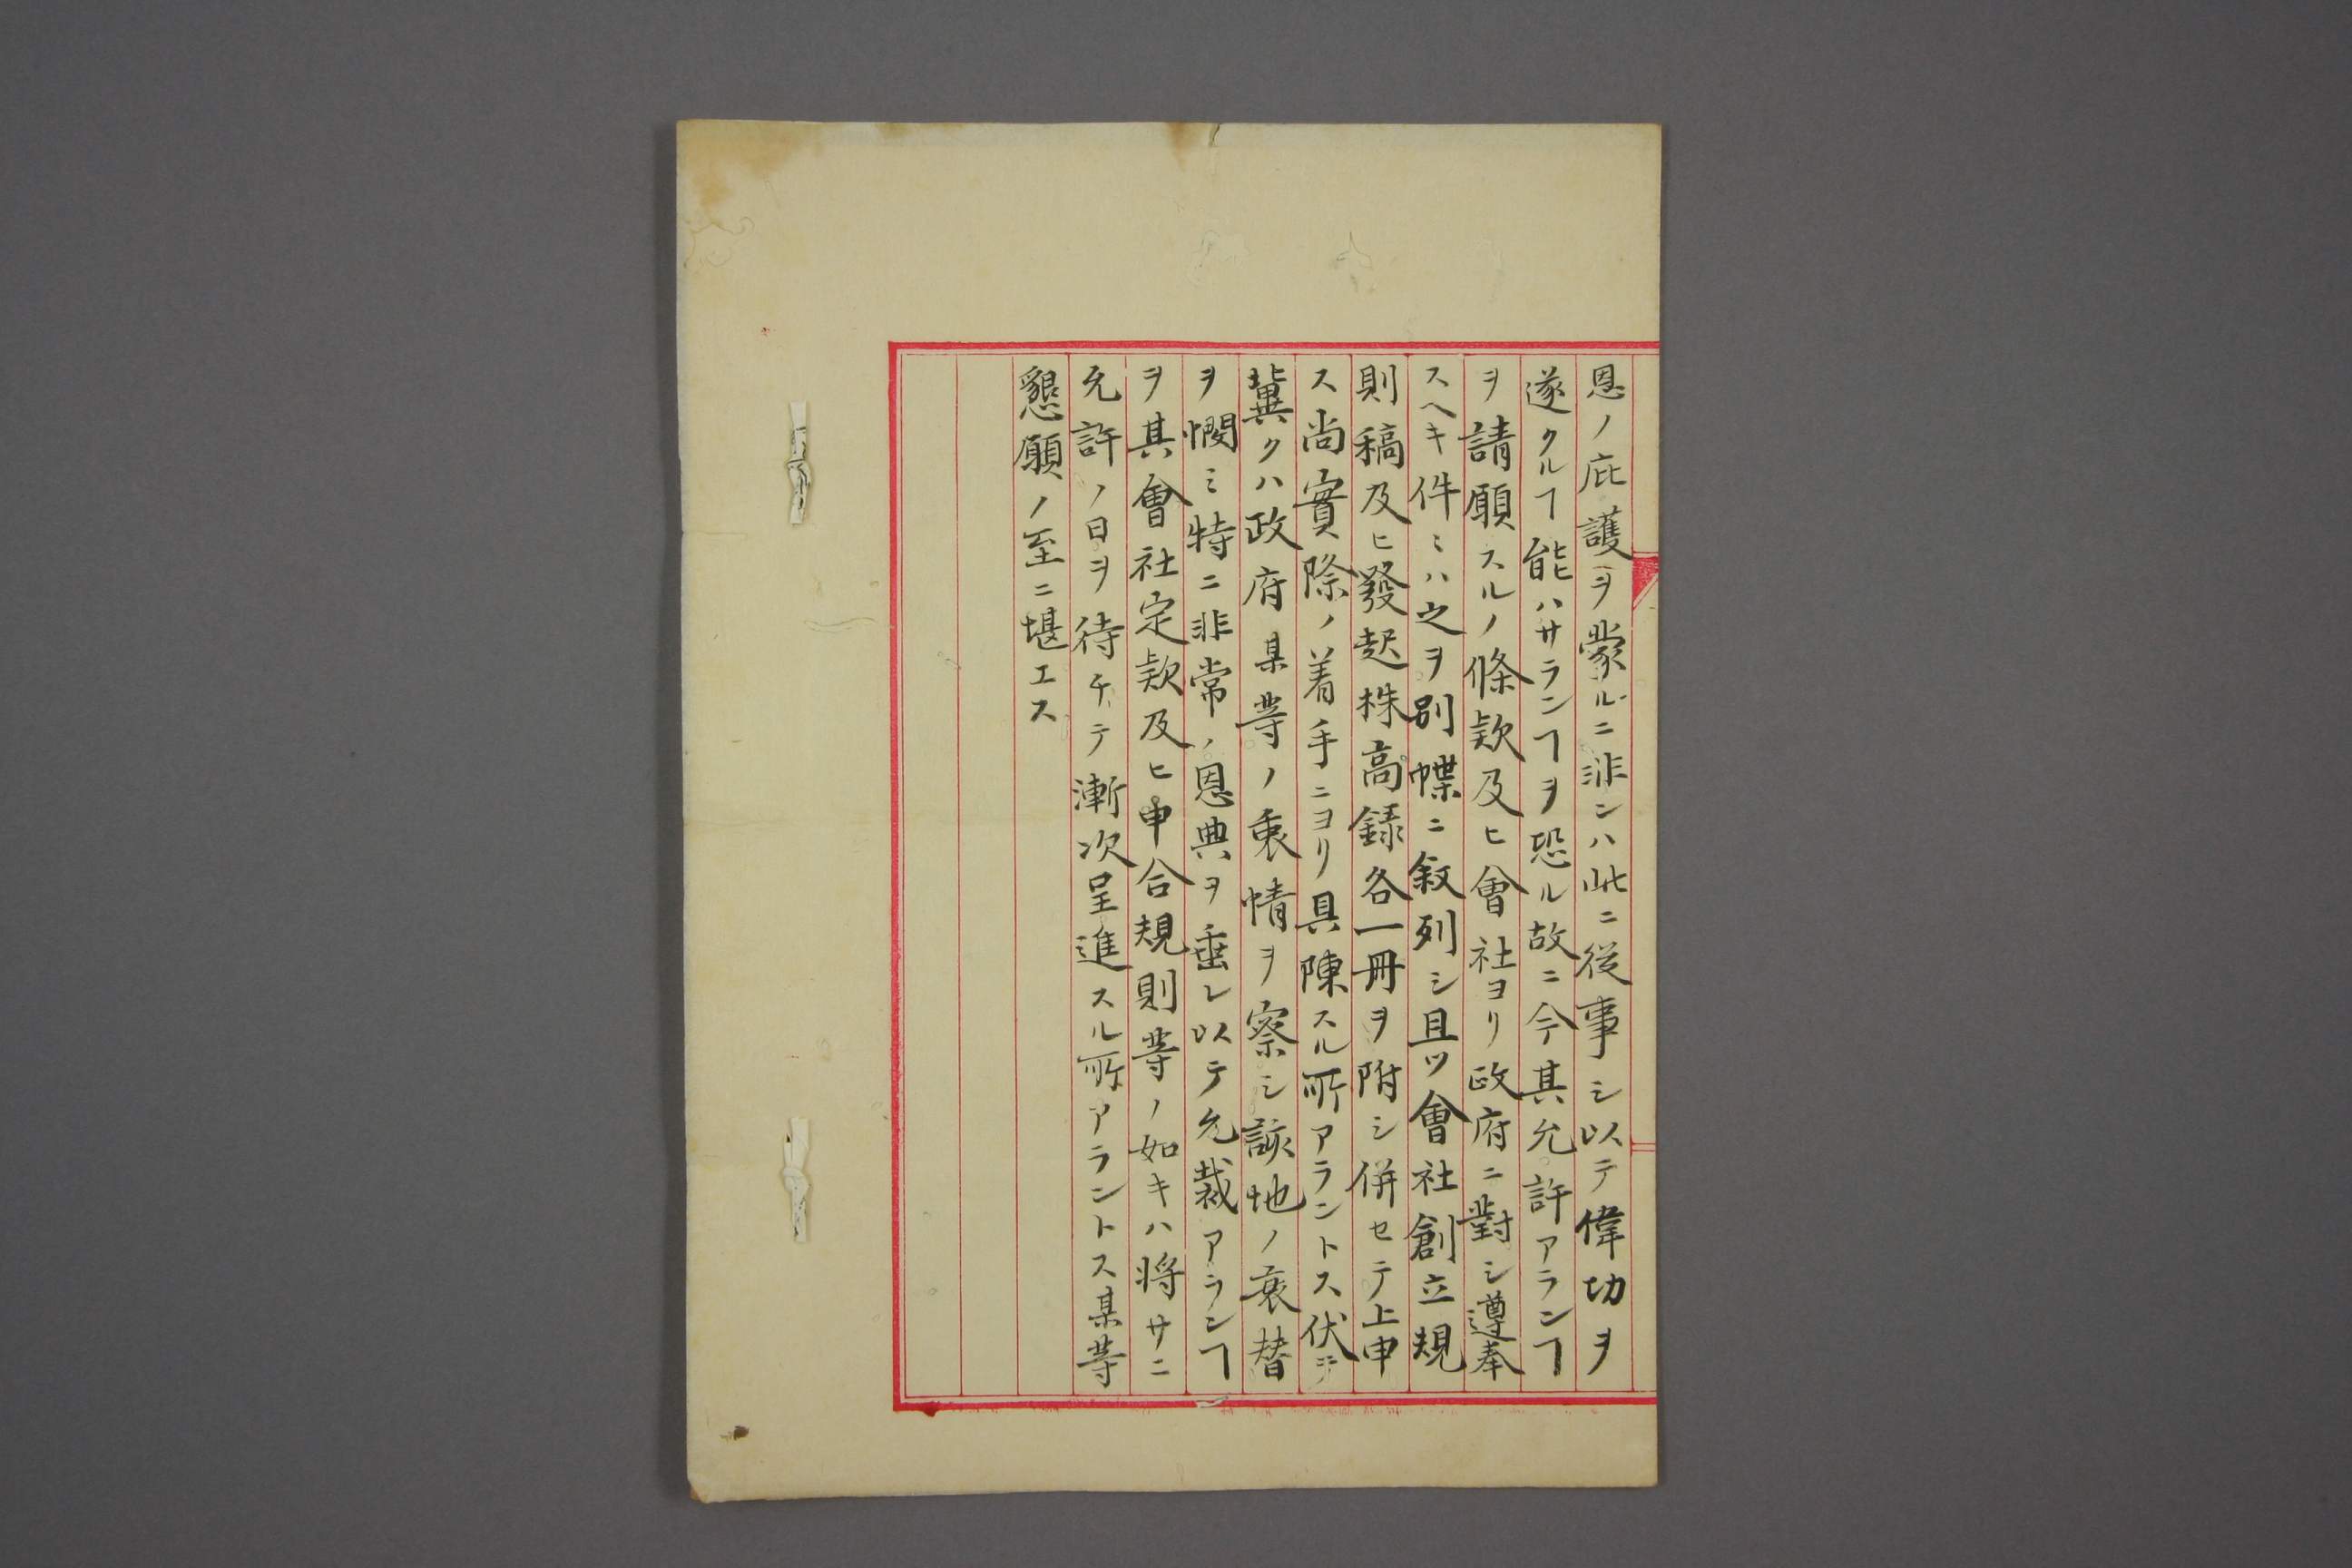 恩ノ庇護ヲ蒙ルニ非ンハ此ニ從事シ以テ偉功ヲ
遂クルヿ能ハサランヿヲ恐ル故ニ今其允許アランヿ
ヲ請願スルノ條欵及ヒ會社ヨリ政府ニ對シ遵奉
スヘキ件〻ハ之ヲ別幉ニ敘列シ且ツ會社創立規
則稿及ヒ發起株高録各一冊ヲ附シ併セテ上申
ス尚實際ノ着手ニヨリ具陳スル所アラントス伏テ
冀クハ政府某等ノ衷情ヲ察シ該地ノ衰替
ヲ憫ミ特ニ非常ノ恩典ヲ垂レ以テ允裁アランヿ
ヲ其會社定欵及ヒ申合規則等ノ如キハ将サニ
允許ノ日ヲ待チテ漸次呈進スル所アラントス某等
懇願ノ至ニ堪エス